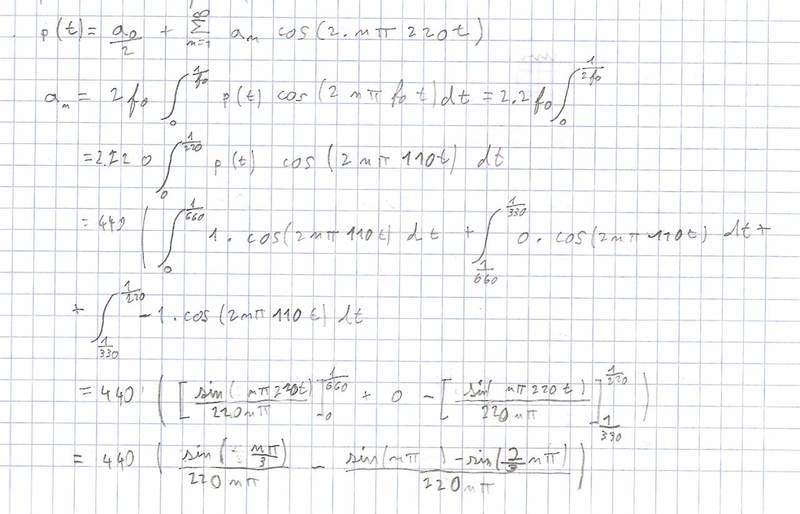 p(t) = a₀/2 + ∑_{n=1}^{∞} aₙ cos(2.nπ 220t)
aₙ = 2f₀ ∫_0^{1/f₀} p(t) cos(2nπ f₀ t)dt = 2.2f₀ ∫_0^{1/2f₀}
= 2.220 ∫_0^{1/220} p(t) cos(2nπ 110t) dt
= 440 ( ∫_0^{1/660} 1. cos(2nπ 110t) dt + ∫_{1/660}^{1/330} 0. cos(2nπ 110t) dt +
+ ∫_{1/330}^{1/220} -1. cos(2nπ 110t) dt
= 440 ( [ sin( nπ220t) / 220nπ ]_0^{1/660} + 0 - [ sin( nπ220t) / 220nπ ]_{1/330}^{1/220} )
= 440 ( sin( nπ/3) / 220nπ - sin(nπ ) - sin(2/3 nπ) / 220nπ )